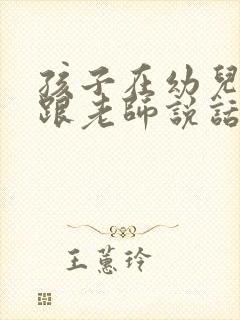 孩子在幼兒
跟老師說話
王蕙玲